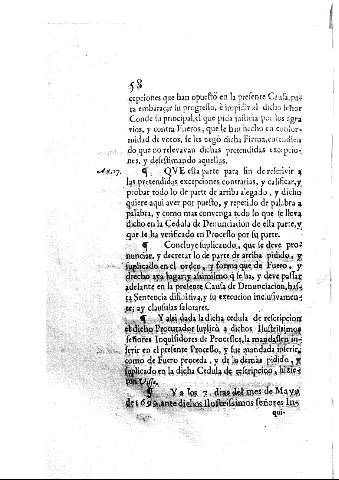 58
cepciones que han opuesto en la presente Causa, pa-
ra embaraçar su progresso, è impidir al dicho señor
Conde su principal, el que pida justicia por los agra-
vios, y contra Fueros, que le han hecho en confor-
midad de votos, se les negò dicha Firma, entendien-
do que no relevavan dichas pretendidas excepcio-
nes, y desestimando aquellas.
¶. QVE esta parte para fin de refetivir a
las pretendidas excepciones contrarias, y calificar, y
probar todo lo de parte de arriba alegado, y dicho
quiere aqui aver por puesto, y repetido de palabra a
palabra, y como mas convenga todo lo que se lleva
dicho en la Cedula de Denunciacion de esta parte, y
que se ha verificado en Processo por su parte.
¶. Concluye suplicando, que se deve pro-
nunciar, y decretar lo de parte de arriba pidido, y
suplicado en el orden, y forma que de Fuero, y
drecho aya lugar, y assimismo q se ha, y deve passar
adelante en la presente Causa de Denunciacion, has-
ta Sentencia difinitiva, y su execucion inclusivamen-
te; ay clausulas salutares.
¶. Y assi dada la dicha cedula de rescripcion
el dicho Procurador suplicò a dichos Ilustrissimos
señores Inquisidores de Processos, la mandassen in-
serir en el presente Processo, y fue mandada inserir,
como de Fuero proceda, y de lo demàs pidido, y
suplicado en la dicha Cedula de rescripcion, hizie-
ron Visis.
¶. Y a los 7. dias del mes de Mayo
de 1692. ante dichos Ilustrissimos señores In-
qui-